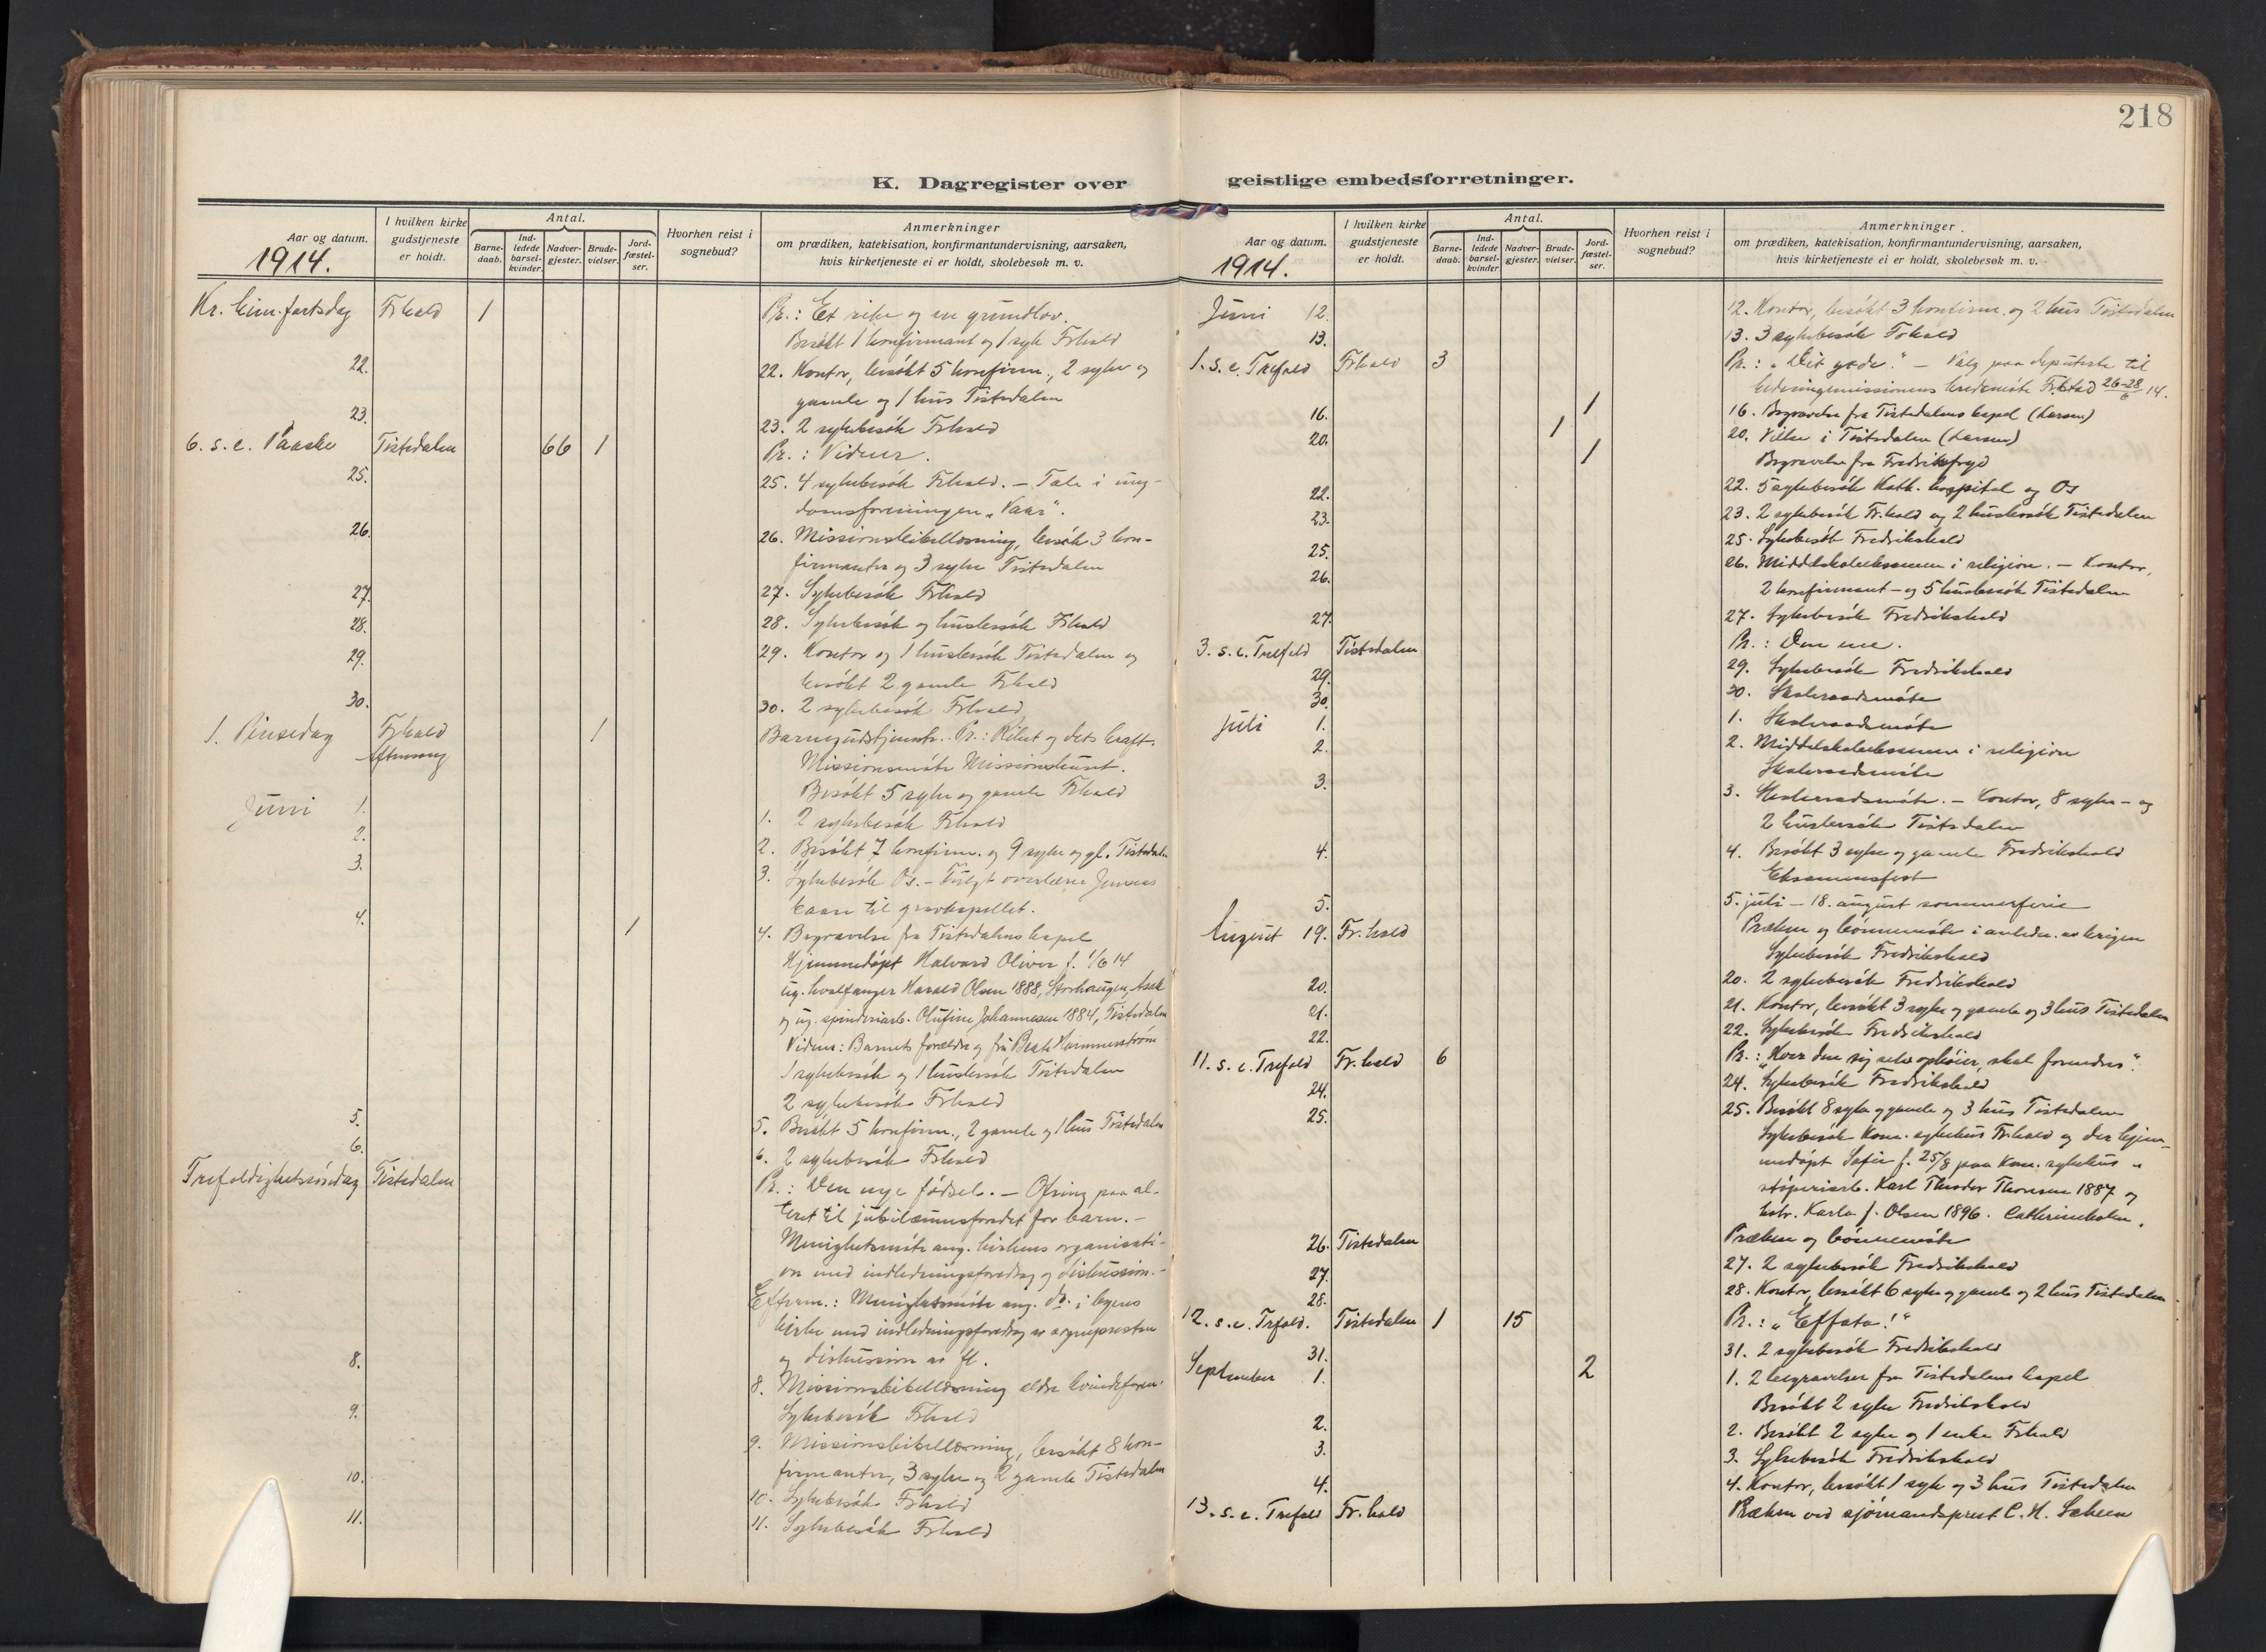 218
K. Dagregister over
geistlige embedsforretninger.
Aar og datum.
1914.
I hvilken kirke gudstjeneste er holdt.
Antal.
Barnedaab.
Indledede barselkvinder.
Nadvergjester.
Brudevielser.
Jordfæstelser.
Hvorhen reist i sognebud?
Anmerkninger
om prædiken, katekisation, konfirmantundervisning, aarsaken,
hvis kirketjeneste ei er holdt, skolebesøk m. v.
Kr. him.fartsdag Frhald 1 Pr.: Et rike og en grundlov.
Besökt 1 konfirmant og 1 syk Frhald
22. 22. Kontor, besökt 5 konfirm., 2 syke og
gamle og 1 hus Tistedalen
23. 23. 2 sykebesök Frhald
6. s. e. Paaske Tistedalen 66 1 Pr.: Vidner.
25. 25. 4 sykebesök Frhald. – Tale i ung-
domsforeningen „Vaar“.
26. 26. Missionsbibellæsning, besök 3 kon-
firmanter og 3 syke Tistedalen
27. 27. Sykebesök Frhald
28. 28. Sykebesök og husbesök Frhald
29. 29. Kontor og 1 husbesök Tistedalen og
besökt 2 gamle Frhald
30. 30. 2 sykebesök Frhald
1. Pinsedag Frhald 1 Barnegudstjeneste. Pr.: Riket og dets kraft.
Aftensang Missionsmöte Missionshuset.
Besökt 5 syke og gamle Frhald
Juni 1. 1. 2 sykebesök Frhald
2. 2. Besökt 7 konfirm. og 9 syke og gl. Tistedalen
3. 3. Sykebesök Os. – Fulgt overlærer Jensens
baare til gravkapellet.
4. 1 4. Begravelse fra Tistedalens kapel
Hjemmedöpt Halvard Oliver f. 1/6 14
ug. hvalfanger Harald Olsen 1888, Storhaugen, Asak
og ug. spinderiarb. Olufine Johannesen 1884, Tistedalen
Vidner: Barnets forældre og fru Beate Hammerström
1 sykebesök og 1 husbesök Tistedalen
2 sykebesök Frhald
5. 5. Besökt 5 konfirm., 2 gamle og 1 hus Tistedalen
6. 6. 2 sykebesök Frhald
Trefoldighetssöndag Tistedalen Pr.: Den nye födsel. – Ofring paa al-
teret til jubilæumsfondet for barn. –
Menighetsmöte ang. kirkens organisati-
on med indledningsforedrag og diskussion. –
Efterm.: Menighetsmöte ang. do. i byens
kirke med indledningsforedrag av sognepresten
og diskussion av fl.
8. 8. Missionsbibellæsning ældre kvindeforen.
Sykebesök Frhald
9. 9. Missionsbibellæsning, besökt 8 kon-
firmanter, 3 syke og 2 gamle Tistedalen
10. 10. Sykebesök Frhald
11. 11. Sykebesök Frhald
Aar og datum.
1914.
I hvilken kirke gudstjeneste er holdt.
Antal.
Barnedaab.
Indledede barselkvinder
Nadvergjester.
Brudevielser.
Jordfæstelser.
Hvorhen reist i sognebud?
Anmerkninger
om prædiken, katekisation, konfirmantundervisning, aarsaken,
hvis kirketjeneste ei er holdt, skolebesøk m. v.
Juni 12. 12. Kontor, besökt 3 konfirm. og 2 hus Tistedalen
13. 13. 3 sykebesök Frhald
1. s. e. Trefold Frhald 3 Pr.: „Dit gode.“ – Valg paa deputerte til
kredsmöte Frstad 26-28/6 14.
16. 1 16. Begravelse fra Tistedalens kapel (Larsen)
20. 1 20. Vielse i Tistedalen (Larsen)
1 Begravelse fra Fredriksfryd
22. 22. 5 sykebesök Kath. hospital og Os
23. 23. 2 sykebesök Fr.hald og 2 husbesök Tistedalen
25. 25. Sykebesök Fredrikshald
26. 26. Middelskoleeksamen i religion. – Kontor,
2 konfirmant- og 5 husbesök Tistedalen
27. 27. Sykebesök Fredrikshald
3. s. e. Trefold Tistedalen Pr.: Den ene.
29. 29. Sykebesök Fredrikshald
30. 30. Skoleraadsmöte
Juli 1. 1. Skoleraadsmöte
2. 2. Middelskoleeksamen i religion
Skoleraadsmöte
3. 3. Skoleraadsmöte. – Kontor, 8 syke- og
2 husbesök Tistedalen
4. 4. Besökt 3 syke og gamle Fredrikshald
Eksamensfest
5. 5. juli – 18. august sommerferie
August 19. Fr.hald Præken og bönnemöte i anledn. av krigen
Sykebesök Fredrikshald
20. 20. 2 sykebesök Fredrikshald
21. 21. Kontor, besökt 3 syke og gamle og 3 hus Tistedalen
22. 22. Sykebesök Fredrikshald
11. s. e. Trefold Fr.hald 6 Pr.: „Hver den sig selv ophöier, skal fornedres“.
24. 24. Sykebesök Fredrikshald
25. 25. Besökt 8 syke og gamle og 3 hus Tistedalen
Sykebesök Kom. sykehus Fr.hald og der hjem-
medöpt Sofie f. 25/8 paa Kom. sykehus av
stöperiarb. Karl Theodor Thoresen 1887 og
hstr. Karla f. Olsen 1896. Cathrineholm.
26. Tistedalen Præken og bönnemöte
27. 27. 2 sykebesök Fredrikshald
28. 28. Kontor, besökt 6 syke og gamle og 2 hus Tistedalen
12. s. e. Trefold. Tistedalen 1 15 Pr.: „Effata!“
31. 31. 2 sykebesök Fredrikshald
September 1. 2 1. 2 begravelser fra Tistedalens kapel
Besökt 2 syke Fredrikshald
2. 2. Besökt 2 syke og 1 enke Frhald
3. 3. Sykebesök Fredrikshald
4. 4. Kontor, besökt 1 syk og 3 hus Tistedalen
13. s. e. Trefold Fr.hald Præken ved sjömandsprest C. H.